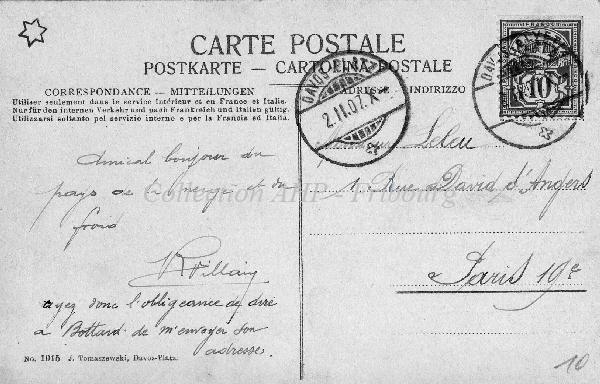 CARTE POSTALE
POSTKARTE — CARTOLINA POSTALE
CORRESPONDANCE — MITTEILUNGEN
ADRESSE INDIRIZZO
Utiliser seulement dans le service intérieur et en France et Italie.
Nur für den internen Verkehr und nach Frankreich und Italien gültig.
Utilizzarsi soltanto pel servizio interno e per la Francia ed Italia.
FRANCO
10
DAVOS-PLATZ
2.II.07.X
DAVOS-PLATZ
Amical bonjour du
pays de la neige et du
froid
Villain
ayez donc l'obligeance de dire
à Bottard de m'envoyer son
adresse.
Leleu
1, Rue David d'Angers
Paris 19e
Collection AHP - Fribourg
No. 1015 J. Tomaszewski, Davos-Platz.
10